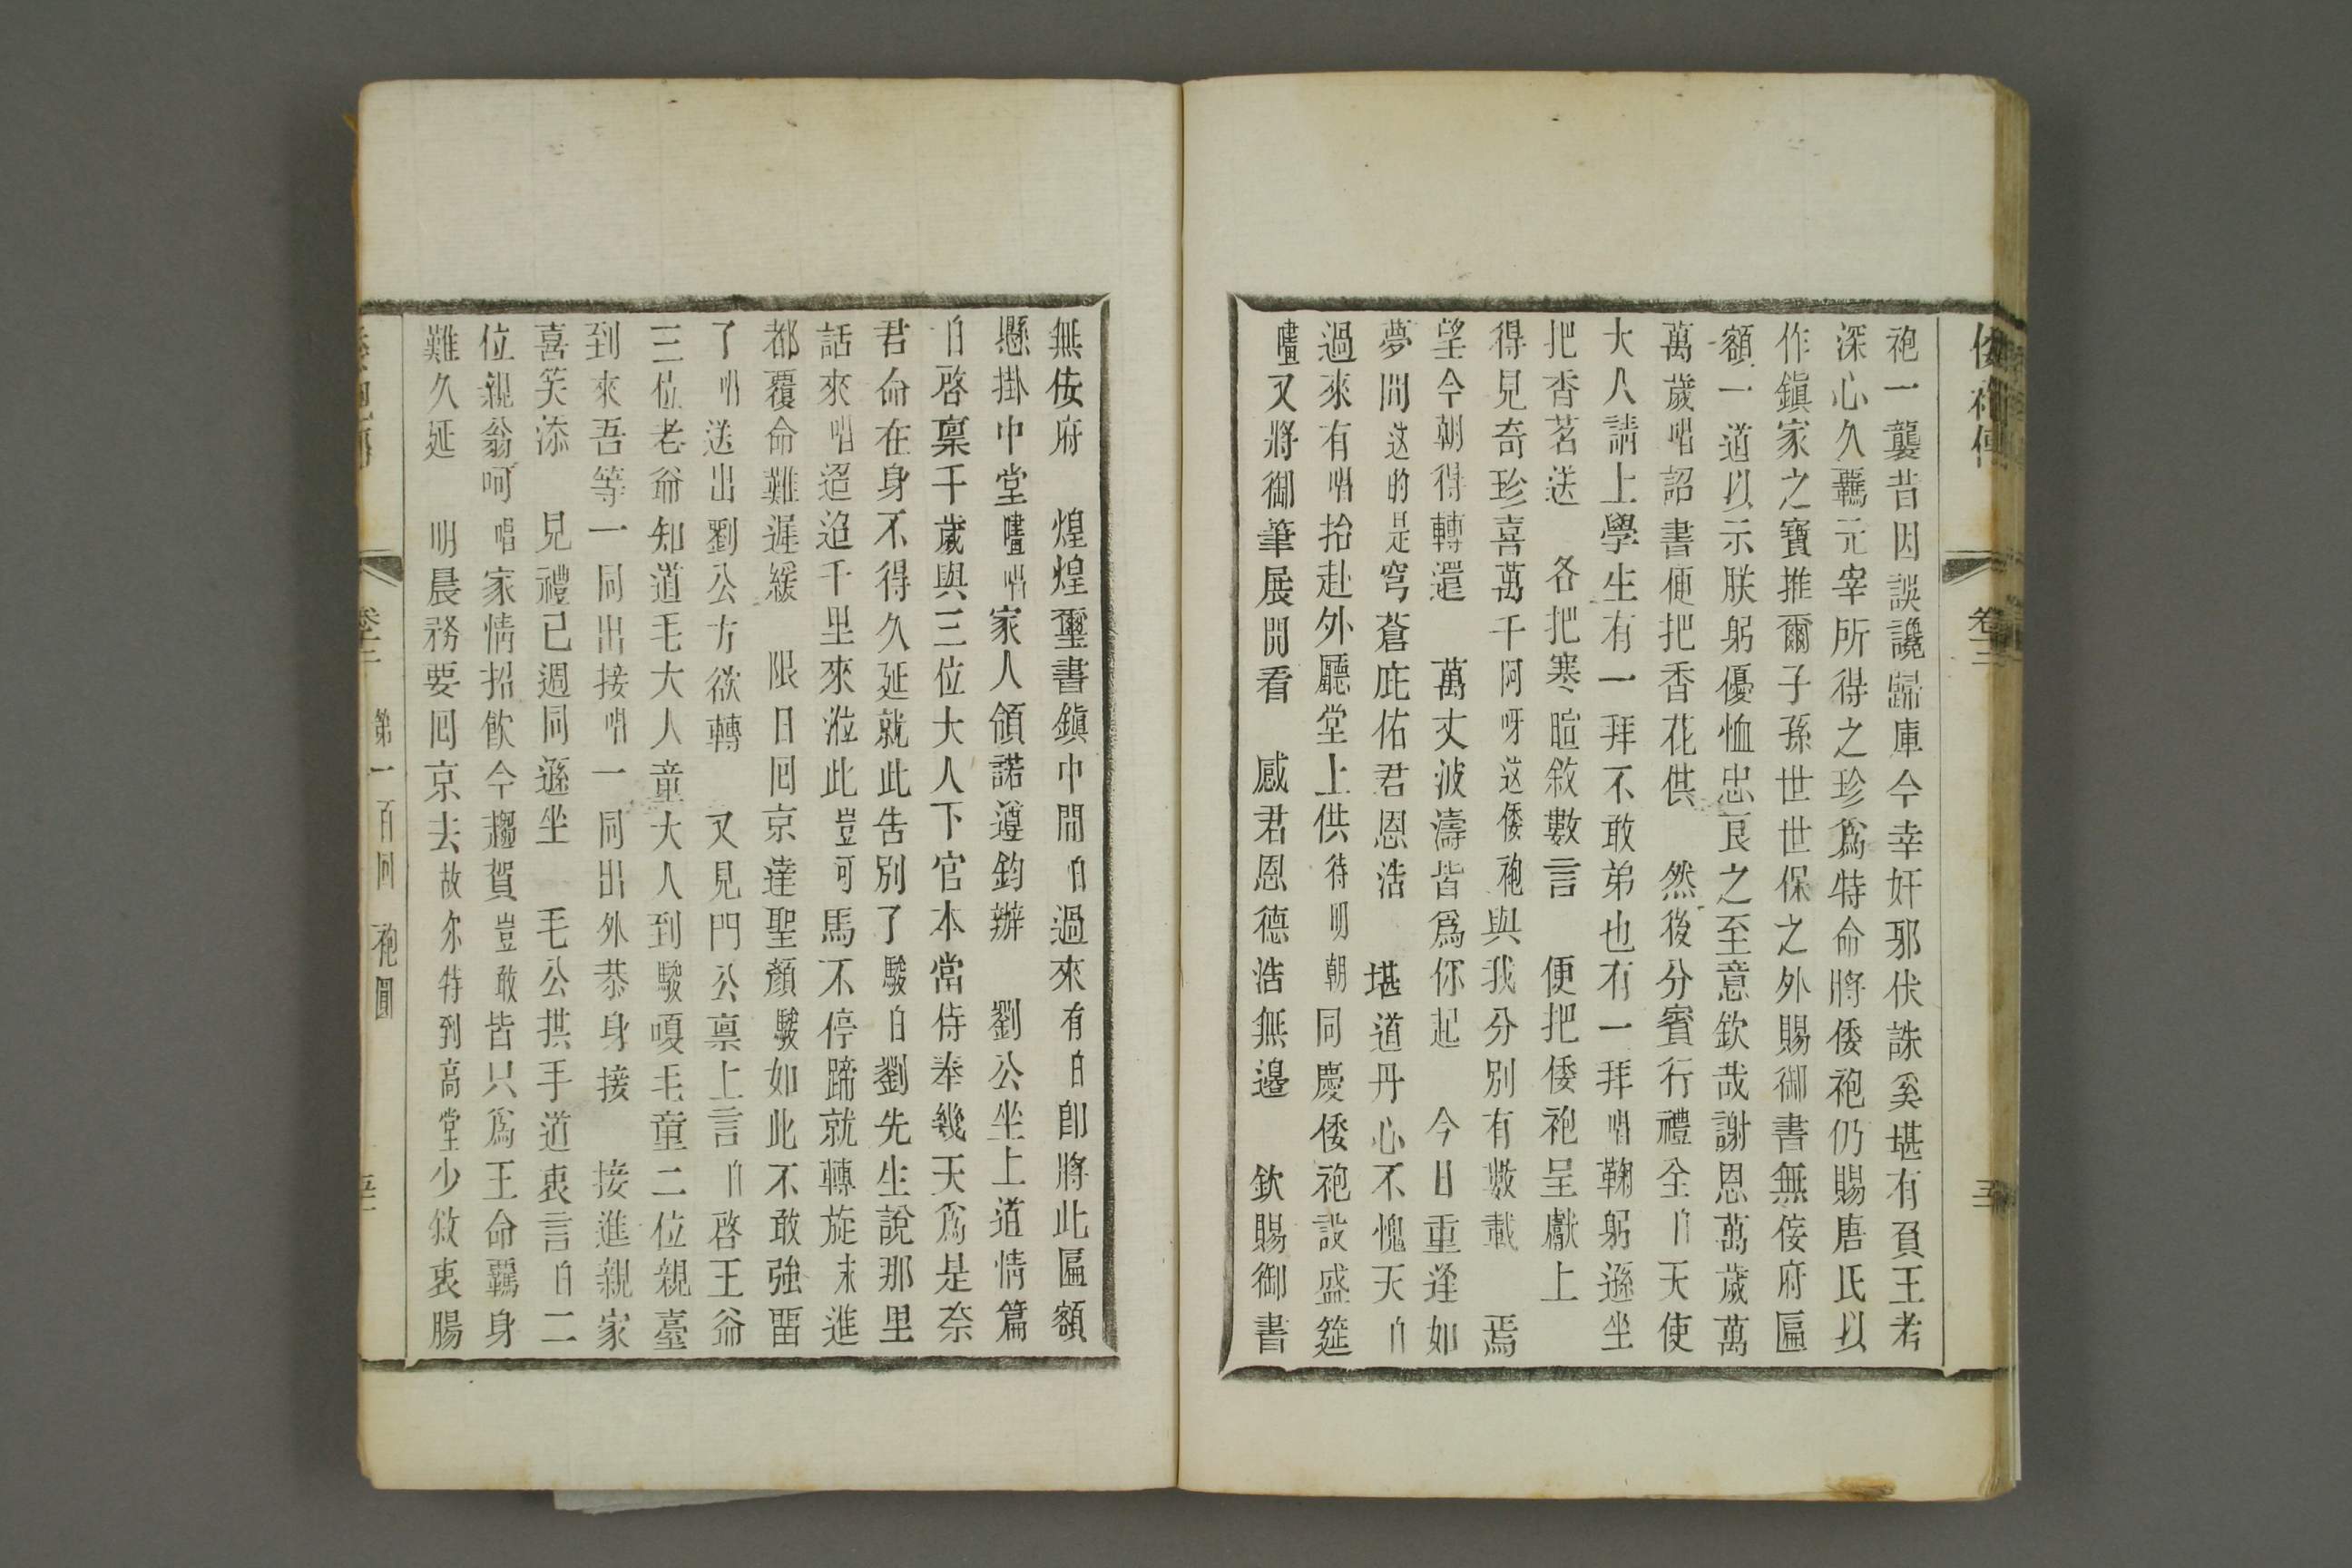 倭袍傳
卷十二
袍一襲昔因誤讒歸庫今幸奸邪伏誅奚堪有負王考
深心久羈元宰所得之珍爲特命將倭袍仍賜唐氏以
作鎭家之寶推爾子孫世世保之外賜御書無佞府匾
額一道以示朕躬優恤忠良之至意欽哉謝恩萬歲萬
萬歲唱詔書便把香花供　然後分賓行禮全白天使
大人請上學生有一拜不敢弟也有一拜唱鞠躬遜坐
把香茗送　各把寒暄敘數言　便把倭袍呈獻上
得見奇珍喜萬千阿呀这倭袍與我分別有數載　焉
望今朝得轉還　萬丈波濤皆爲你起　今日重逢如
夢間这的是穹蒼庇佑君恩浩　堪道丹心不愧天白
過來有唱抬赴外廳堂上供待明朝同慶倭袍設盛筵
嚍又將御筆展開看　感君恩德浩無邊　欽賜御書
無佞府　煌煌璽書鎭中間白過來有白卽將此匾額
懸掛中堂嚍唱家人領諾遵鈞辦　劉公坐上道情篇
白啓稟千歲與三位大人下官本當侍奉幾天爲是奈
君命在身不得久延就此告別了駿白劉先生說那里
話來唱迢迢千里來涖此豈可馬不停蹄就轉旋末進
都覆命難遲緩　限日囘京達聖顏駿如此不敢強畱
了唱送出劉公方欲轉　又見門公稟上言白啓王爺
三位老爺知道毛大人童大人到駿嗄毛童二位親臺
到來吾等一同出接唱一同出外恭身接　接進親家
喜笑添　見禮已週同遜坐　毛公拱手道衷言白二
位親翁呵唱家情招飮今趨賀豈敢皆只爲王命羈身
難久延　明晨務要囘京去故尔特到高堂少敘衷腸
第一百囘　袍圓